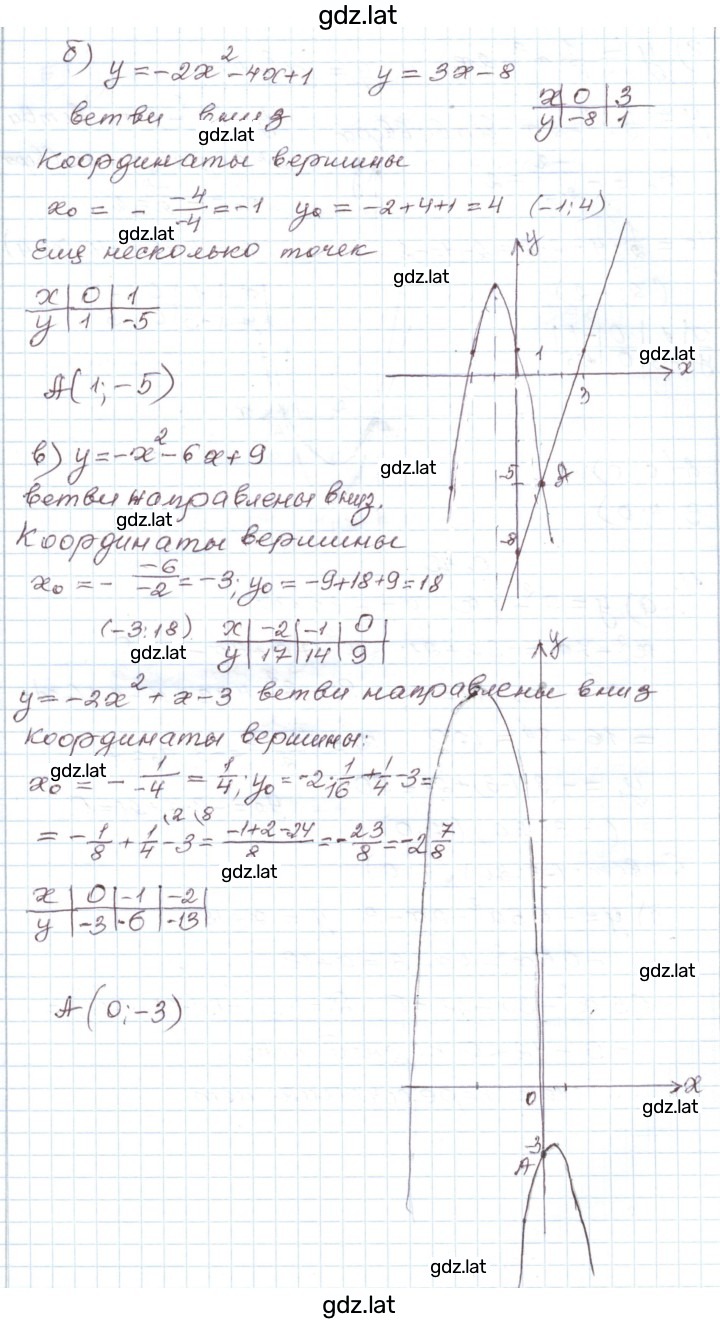 gdz.lat
б) y = -2x² - 4x + 1   y = 3x - 8
x | 0 | 3
y | -8 | 1
ветви вниз
gdz.lat
Координаты вершины
x₀ = - -4/-4 = -1   y₀ = -2+4+1 = 4   (-1; 4)
gdz.lat
Еще несколько точек
x | 0 | 1
y | 1 | -5
A(1; -5)
y
gdz.lat
1
gdz.lat
x
3
-5
A
-8
в) y = -x² - 6x + 9
gdz.lat
ветви направлены вниз.
gdz.lat
Координаты вершины
x₀ = - -6/-2 = -3; y₀ = -9+18+9 = 18
(-3; 18)
x | -2 | -1 | 0
y | 17 | 14 | 9
gdz.lat
y = -2x² + x - 3 ветви направлены вниз
Координаты вершины:
gdz.lat
x₀ = - 1/-4 = 1/4; y₀ = -2·1/16 + 1/4 - 3 =
= -1/8 + 1/4 \2 - 3 \8 = -1+2-24/8 = -23/8 = -2 7/8
gdz.lat
x | 0 | -1 | -2
y | -3 | -6 | -13
A(0; -3)
y
gdz.lat
x
0
gdz.lat
-3
A
gdz.lat
gdz.lat